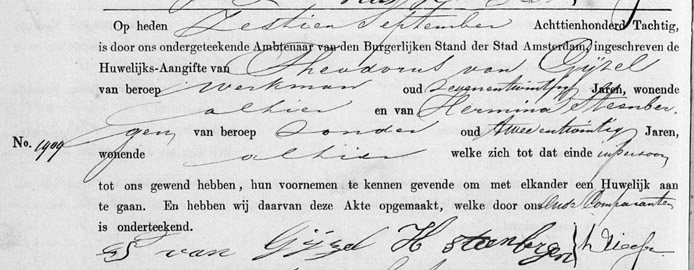 Op heden Zestien September Achttienhonderd Tachtig,
is door ons ondergeteekende Ambtenaar van den Burgerlijken Stand der Stad Amsterdam, ingeschreven de
Huwelijks-Aangifte van Theodorus van Gijzel
van beroep werkman oud zevenentwintig Jaren, wonende
alhier en van Hermina Steenber-
gen, van beroep zonder oud tweeentwintig Jaren,
No. 1909
wonende alhier welke zich tot dat einde in persoon
tot ons gewend hebben, hun voornemen te kennen gevende om met elkander een Huwelijk aan
te gaan. En hebben wij daarvan deze Akte opgemaakt, welke door ons en de Comparanten
is onderteekend.
van Gijzel H Steenbergen